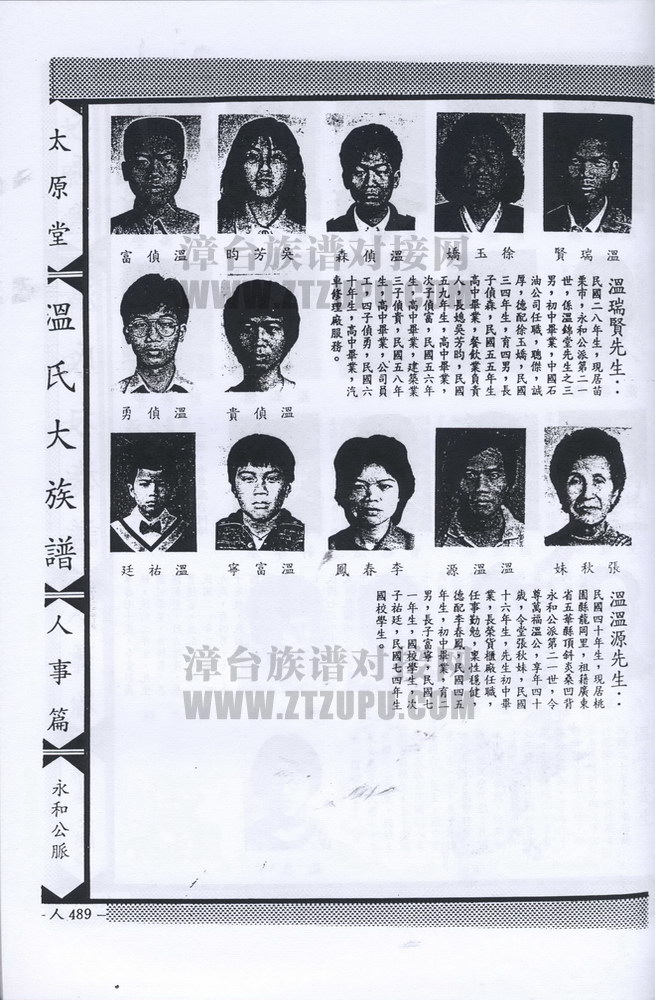 太原堂
溫氏大族譜
人事篇
永和公脈
溫瑞賢
徐玉嬌
溫偵森
吳芳昀
溫偵富
溫瑞賢先生：
民國二八年生，現居苗
栗市，永和公派第二一
世，係溫錦堂先生之三
男，初中畢業，中國石
油公司任職，聰傑，誠
厚，德配徐玉嬌，民國
三四年生，育四男，長
子偵森，民國五五年生
高中畢業，餐飲業負責
人，長媳吳芳昀，民國
五九年生，高中畢業，
次子偵富，民國五六年
生，高中畢業，建築業
三子偵貴，民國五八年
生，高中畢業，公司員
工，四子偵勇，民國六
十年生，高中畢業，汽
車修理廠服務。
溫偵貴
溫偵勇
張秋妹
溫溫源
李春鳳
溫富寧
溫祐廷
溫溫源先生：
民國四十年生，現居桃
園縣龍岡里，祖籍廣東
省五華縣頂斜炎桑凹背
永和公派第二一世，令
尊萬福溫公，享年四十
歲，令堂張秋妹，民國
十六年生，先生初中畢
業，長榮貨櫃廠任職，
任事勤勉，稟性穩健，
德配李春鳳，民國四五
年生，初中畢業，育二
男，長子富寧，民國七
一年生，國校學生，次
子祐廷，民國七四年生
國校學生。
漳台族谱对接网
WWW.ZTZUPU.COM
漳台族谱对接网
WWW.ZTZUPU.COM
-人 489-